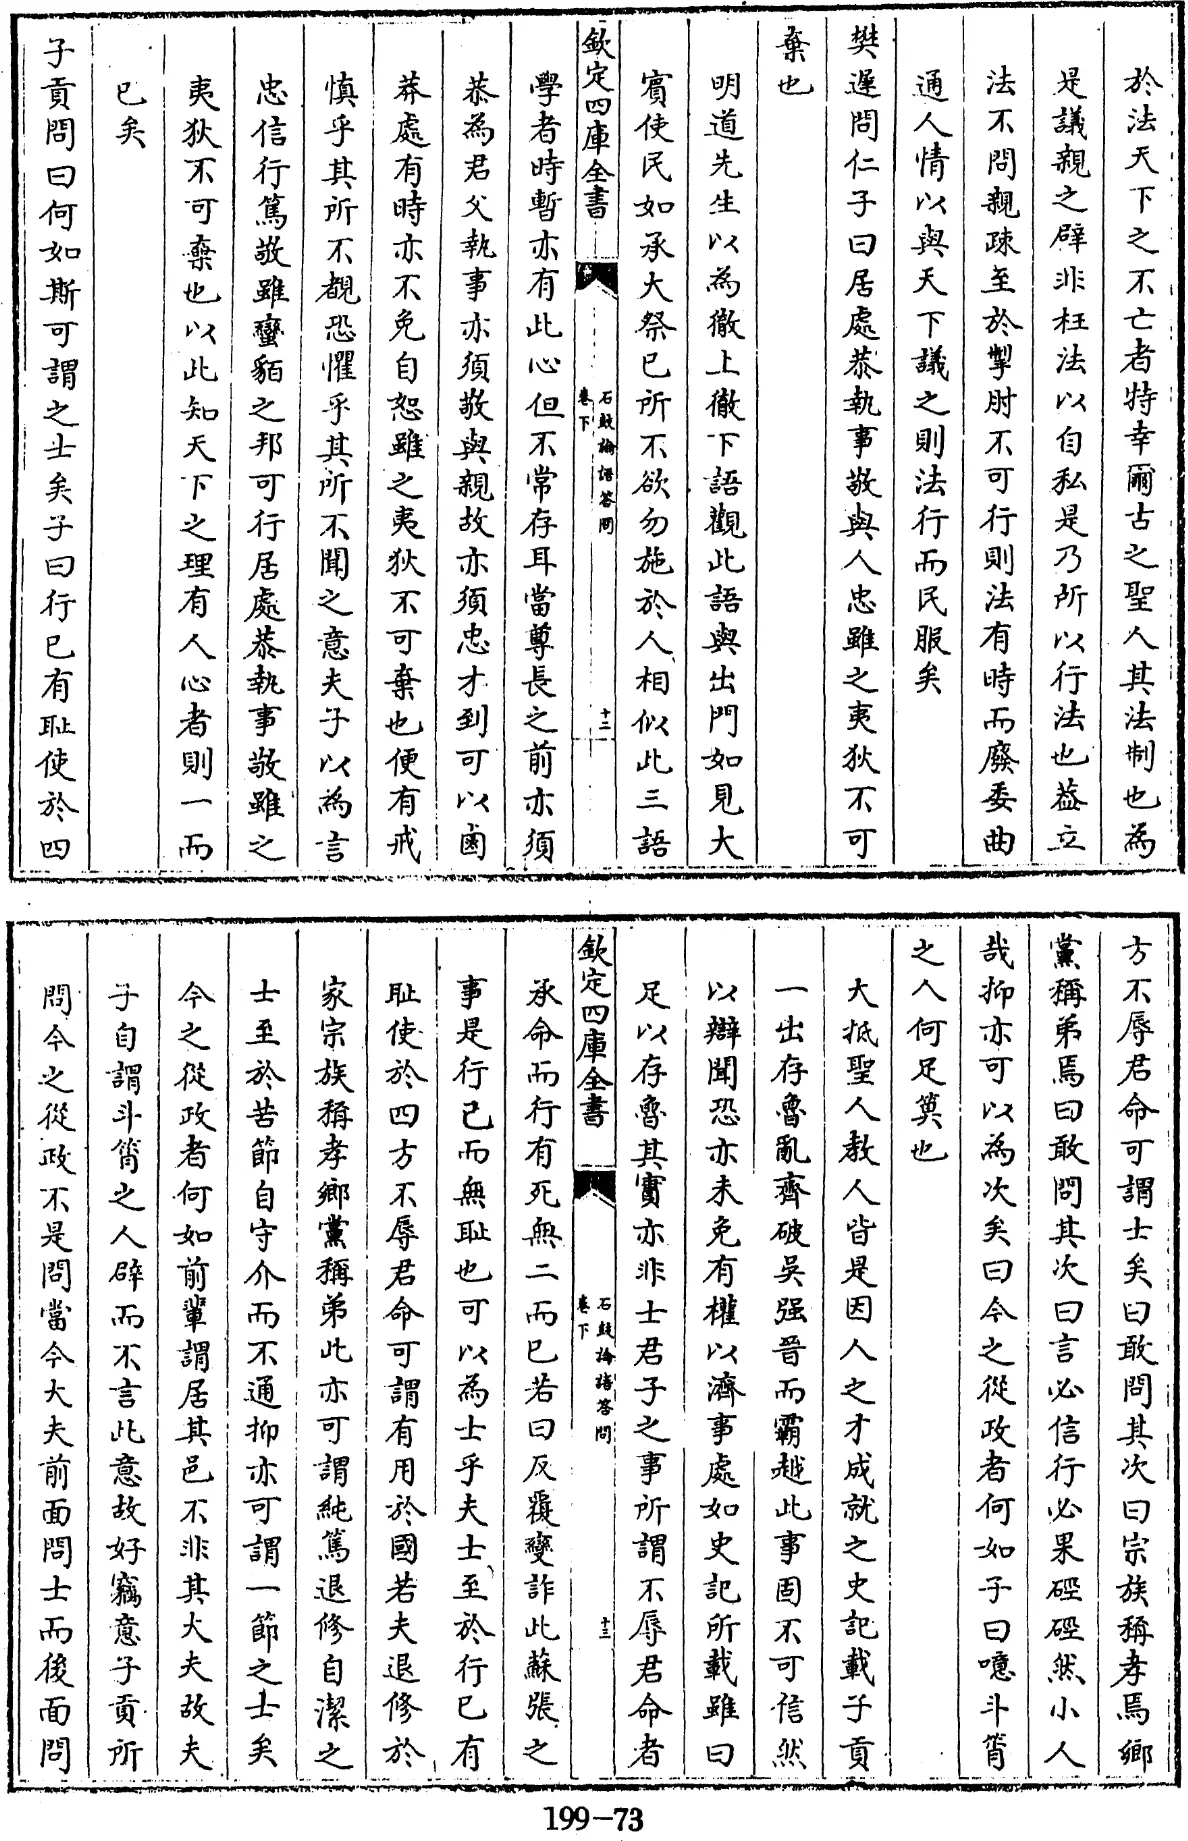 於法天下之不亡者特幸爾古之聖人其法制也為
是議親之辟非枉法以自私是乃所以行法也葢立
法不問親疎至於掣肘不可行則法有時而廢委曲
通人情以與天下議之則法行而民服矣
樊遲問仁子曰居處恭執事敬與人忠雖之夷狄不可
棄也
明道先生以為徹上徹下語觀此語與出門如見大
賓使民如承大祭已所不欲勿施於人相似此三語
欽定四庫全書
石鼓論語答問
卷下
十二
學者時暫亦有此心但不常存耳當尊長之前亦須
恭為君父執事亦須敬與親故亦須忠才到可以鹵
莽處有時亦不免自恕雖之夷狄不可棄也便有戒
慎乎其所不覩恐懼乎其所不聞之意夫子以為言
忠信行篤敬雖蠻貊之邦可行居處恭執事敬雖之
夷狄不可棄也以此知天下之理有人心者則一而
已矣
子貢問曰何如斯可謂之士矣子曰行已有恥使於四
方不辱君命可謂士矣曰敢問其次曰宗族稱孝焉鄉
黨稱弟焉曰敢問其次曰言必信行必果硜硜然小人
哉抑亦可以為次矣曰今之從政者何如子曰噫斗筲
之人何足筭也
大抵聖人教人皆是因人之才成就之史記載子貢
一出存魯亂齊破吳强晉而霸越此事固不可信然
以辯聞恐亦未免有權以濟事處如史記所載雖曰
足以存魯其實亦非士君子之事所謂不辱君命者
欽定四庫全書
石鼓論語答問
卷下
十三
承命而行有死無二而已若曰反覆變詐此蘇張之
事是行己而無恥也可以為士乎夫士至於行已有
恥使於四方不辱君命可謂有用於國若夫退修於
家宗族稱孝鄉黨稱弟此亦可謂純篤退修自潔之
士至於苦節自守介而不通抑亦可謂一節之士矣
今之從政者何如前輩謂居其邑不非其大夫故夫
子自謂斗筲之人辟而不言此意故好竊意子貢所
問今之從政不是問當今大夫前面問士而後面問
199-73